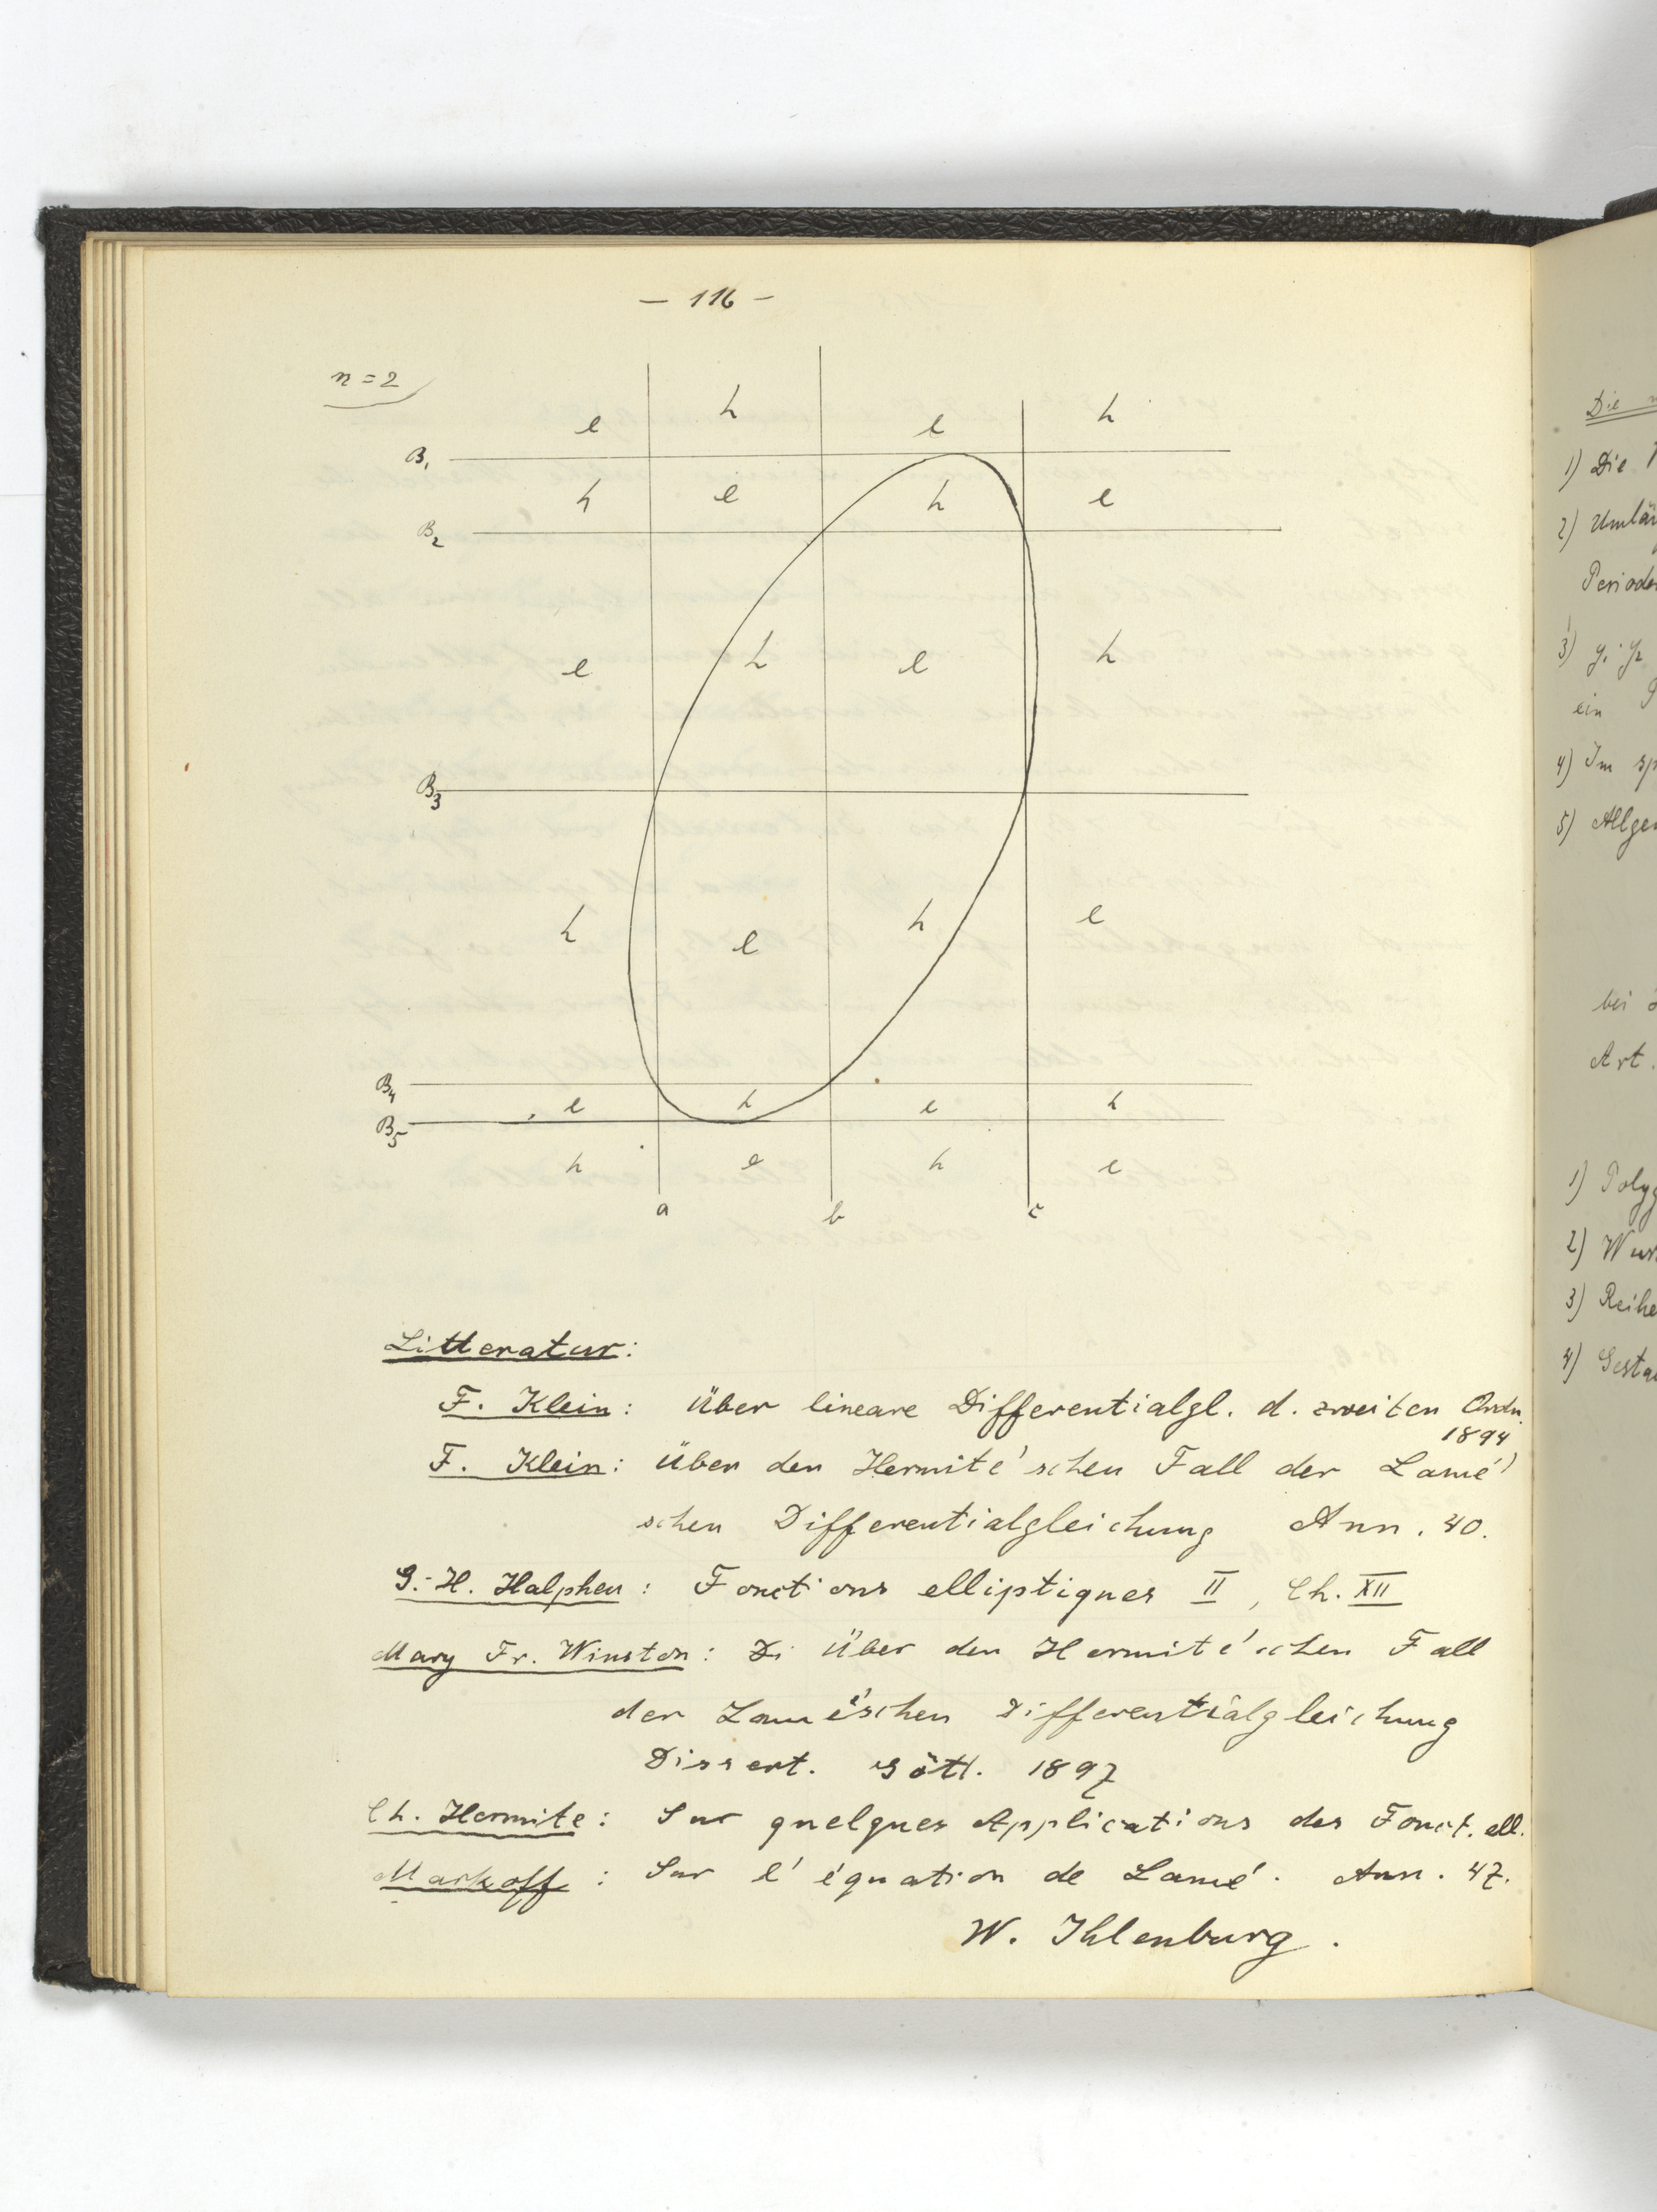 — 116 —
n = 2
e h e h
B₁
h e h e
B₂
e h e h
B₃
h e h e
B₄
e h e h
B₅
h e h e
a b c
Litteratur:
F. Klein: Über lineare Differentialgl. d. zweiten Ordn.
1894
F. Klein: Über den Hermité'schen Fall der Lamé'
schen Differentialgleichung Ann. 40.
G.-H. Halphen: Fonctions elliptiques II, Ch. XII
Mary Fr. Winston: Di Über den Hermité'schen Fall
der Lamé'schen Differentialgleichung
Dissert. Gött. 1897
Ch. Hermite: Sur quelques Applications des Fonct. ell.
Markoff: Sur l'équation de Lamé. Ann. 47.
W. Ihlenburg.
Die
1) Die
2)
3) y₁ y₂
ein
4) Im
5)
bei
Art.
1)
2)
3)
4)